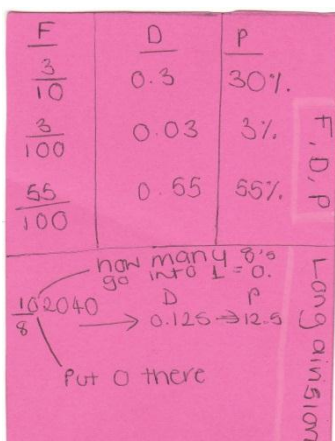 F D P
3/10 0.3 30%
3/100 0.03 3%
55/100 0.55 55%
F, D, P
how many 8's
go into 1 = 0.
D P
102040/8 → 0.125 → 12.5
Put 0 there
Long division